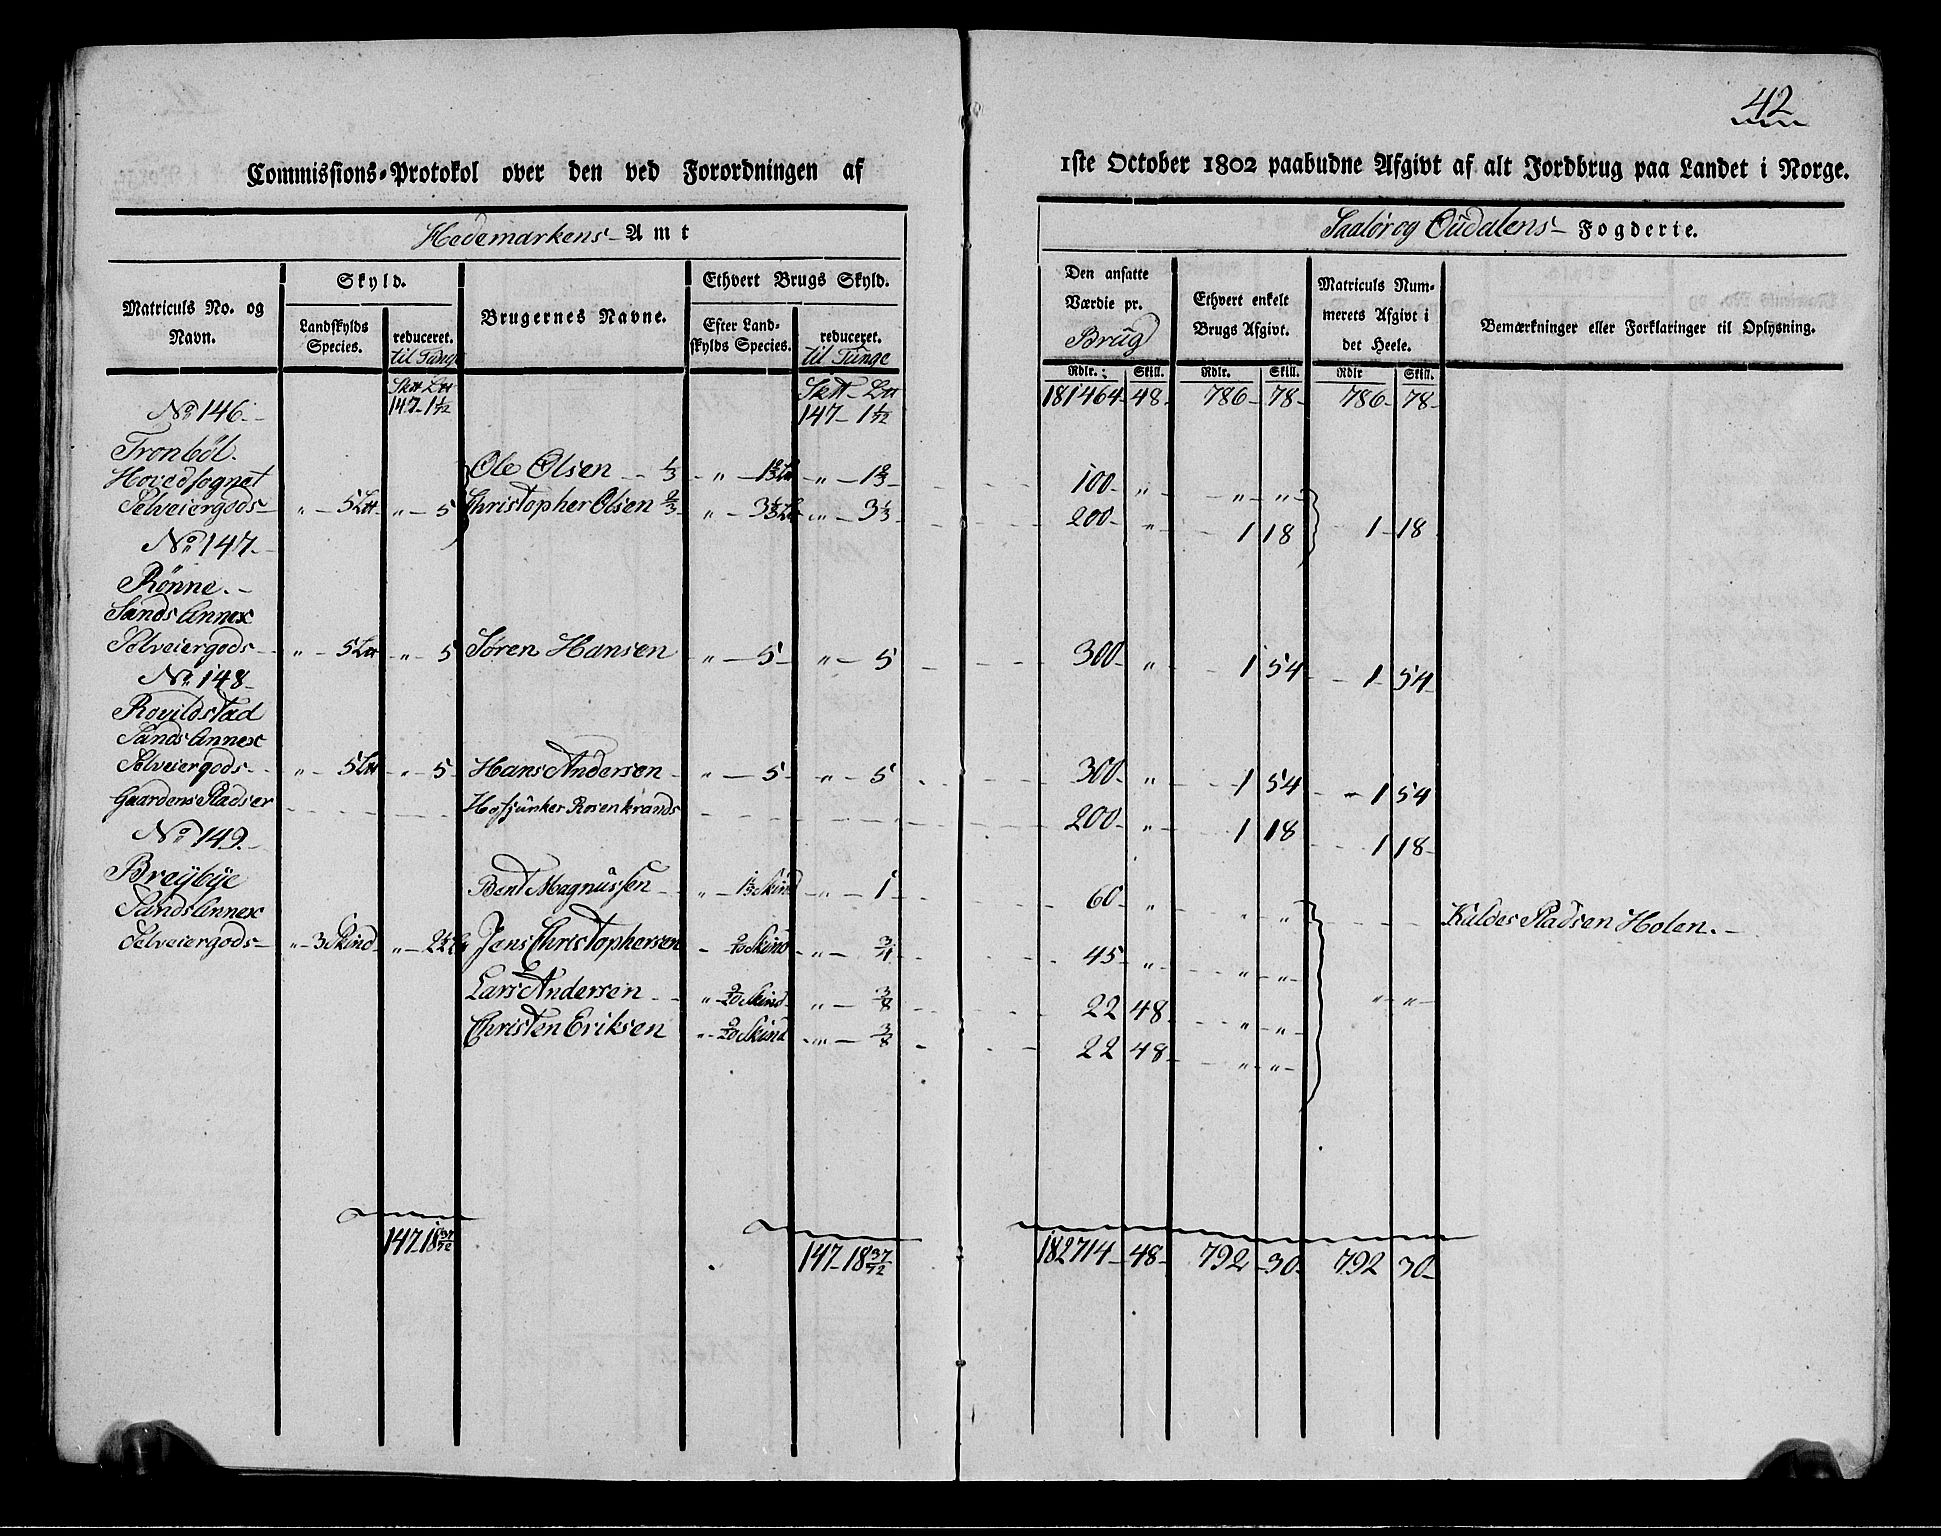 42
Commissions-Protokol over den ved Forordningen af 1ste October 1802 paabudne Afgivt af alt Jordbrug paa Landet i Norge.
Hedemarkens Amt
Saalør og Oudalens Fogderie.
Matriculs No. og Navn.
Skyld.
Landskylds Species.
reduceret. til Tunge
Brugernes Navne.
Ethvert Brugs Skyld.
Efter Landskylds Species.
reduceret. til Tunge
Den ansatte Værdie pr. Brug
Ethvert enkelt Brugs Afgivt.
Matriculs Nummerets Afgivt i det Heele.
Bemærkninger eller Forklaringer til Oplysning.
Rdlr. Skill. Rdlr. Skill. Rdlr Skill.
147 - 1 1/72 147 - 1 1/72 181464 - 48 - 786 - 78 - 786 - 78 -
No 146. -
Tronbøl.
Hovedsognet Ole Olsen 1/3 „ 1 2/3 „ 1 2/3 100 „ „ „
Selveiergods „ 5 „ 5 Christopher Olsen 2/3 „ 3 1/3 „ 3 1/3 200 „ 1 18 1 - 18
No 147. -
Rønne. -
Sands Annex
Selveiergods „ 5 „ 5 Søren Hansen „ 5 „ 5 300 „ 1 54 1 54
No 148 -
Rovildstad
Sands Annex
Selveiergods „ 5 „ 5 Hans Andersen „ 5 „ 5 300 „ 1 54 1 54
Gaardens Pladser Hofjunker Rosenkrands 200 „ 1 18 1 18
No 149. -
Breÿbÿe Bent Magnussen „ Skind „ 1 60 „ „ „
Sands Annex Kaldes Pladsen Holen. -
Selveiergods „ 3 Skind „ 2 1/2 Jens Christophersen Skind „ 3/4 45 „ „ „
Lars Andersen „ 9/20 Skind „ 3/8 22 48 „ „ „ „
Christen Eriksen „ 9/20 Skind „ 3/8 22 48 „ „
147 - 18 37/72 147 - 18 37/72 182714 - 48 - 792 - 30 - 792 30 -